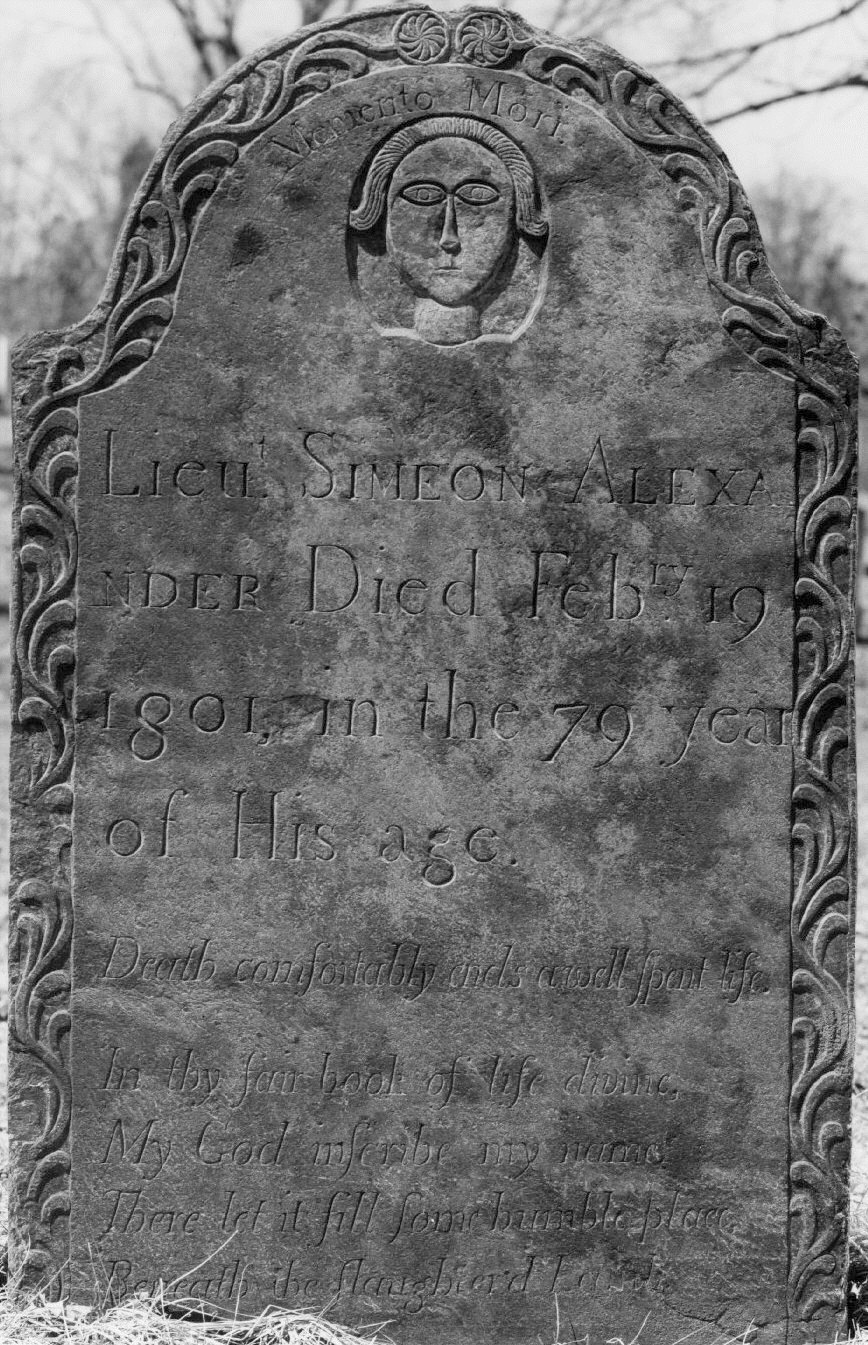 Memento Mori
Lieuᵗ. SIMEON ALEXA
NDER Died Febʳʸ. 19
1801, in the 79 year
of His age.
Death comfortably ends a well ſpent life.
In thy fair book of life divine,
My God inſcribe my name
There let it fill ſome humble place,
Beneath the ſlaughter'd Lamb.